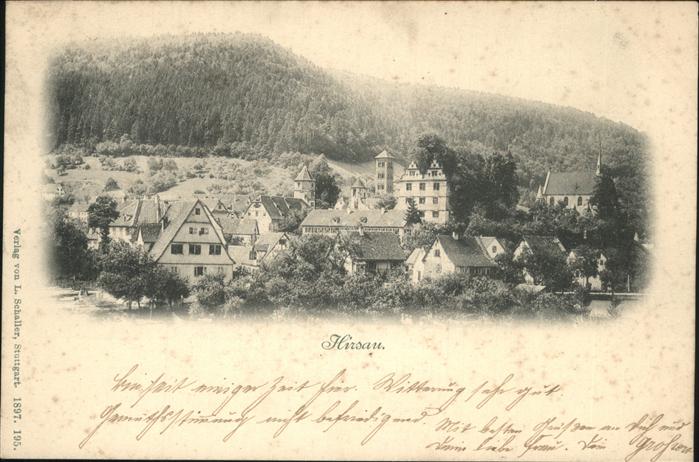 Hirsau.
Bin seit einiger Zeit hier. Witterung sehr gut
Gemüthsstimmung nicht befriedigend.
Mit besten Grüßen an Dich und
Deine liebe Frau. Dein
Verlag von L. Schaller, Stuttgart. 1897. 195.